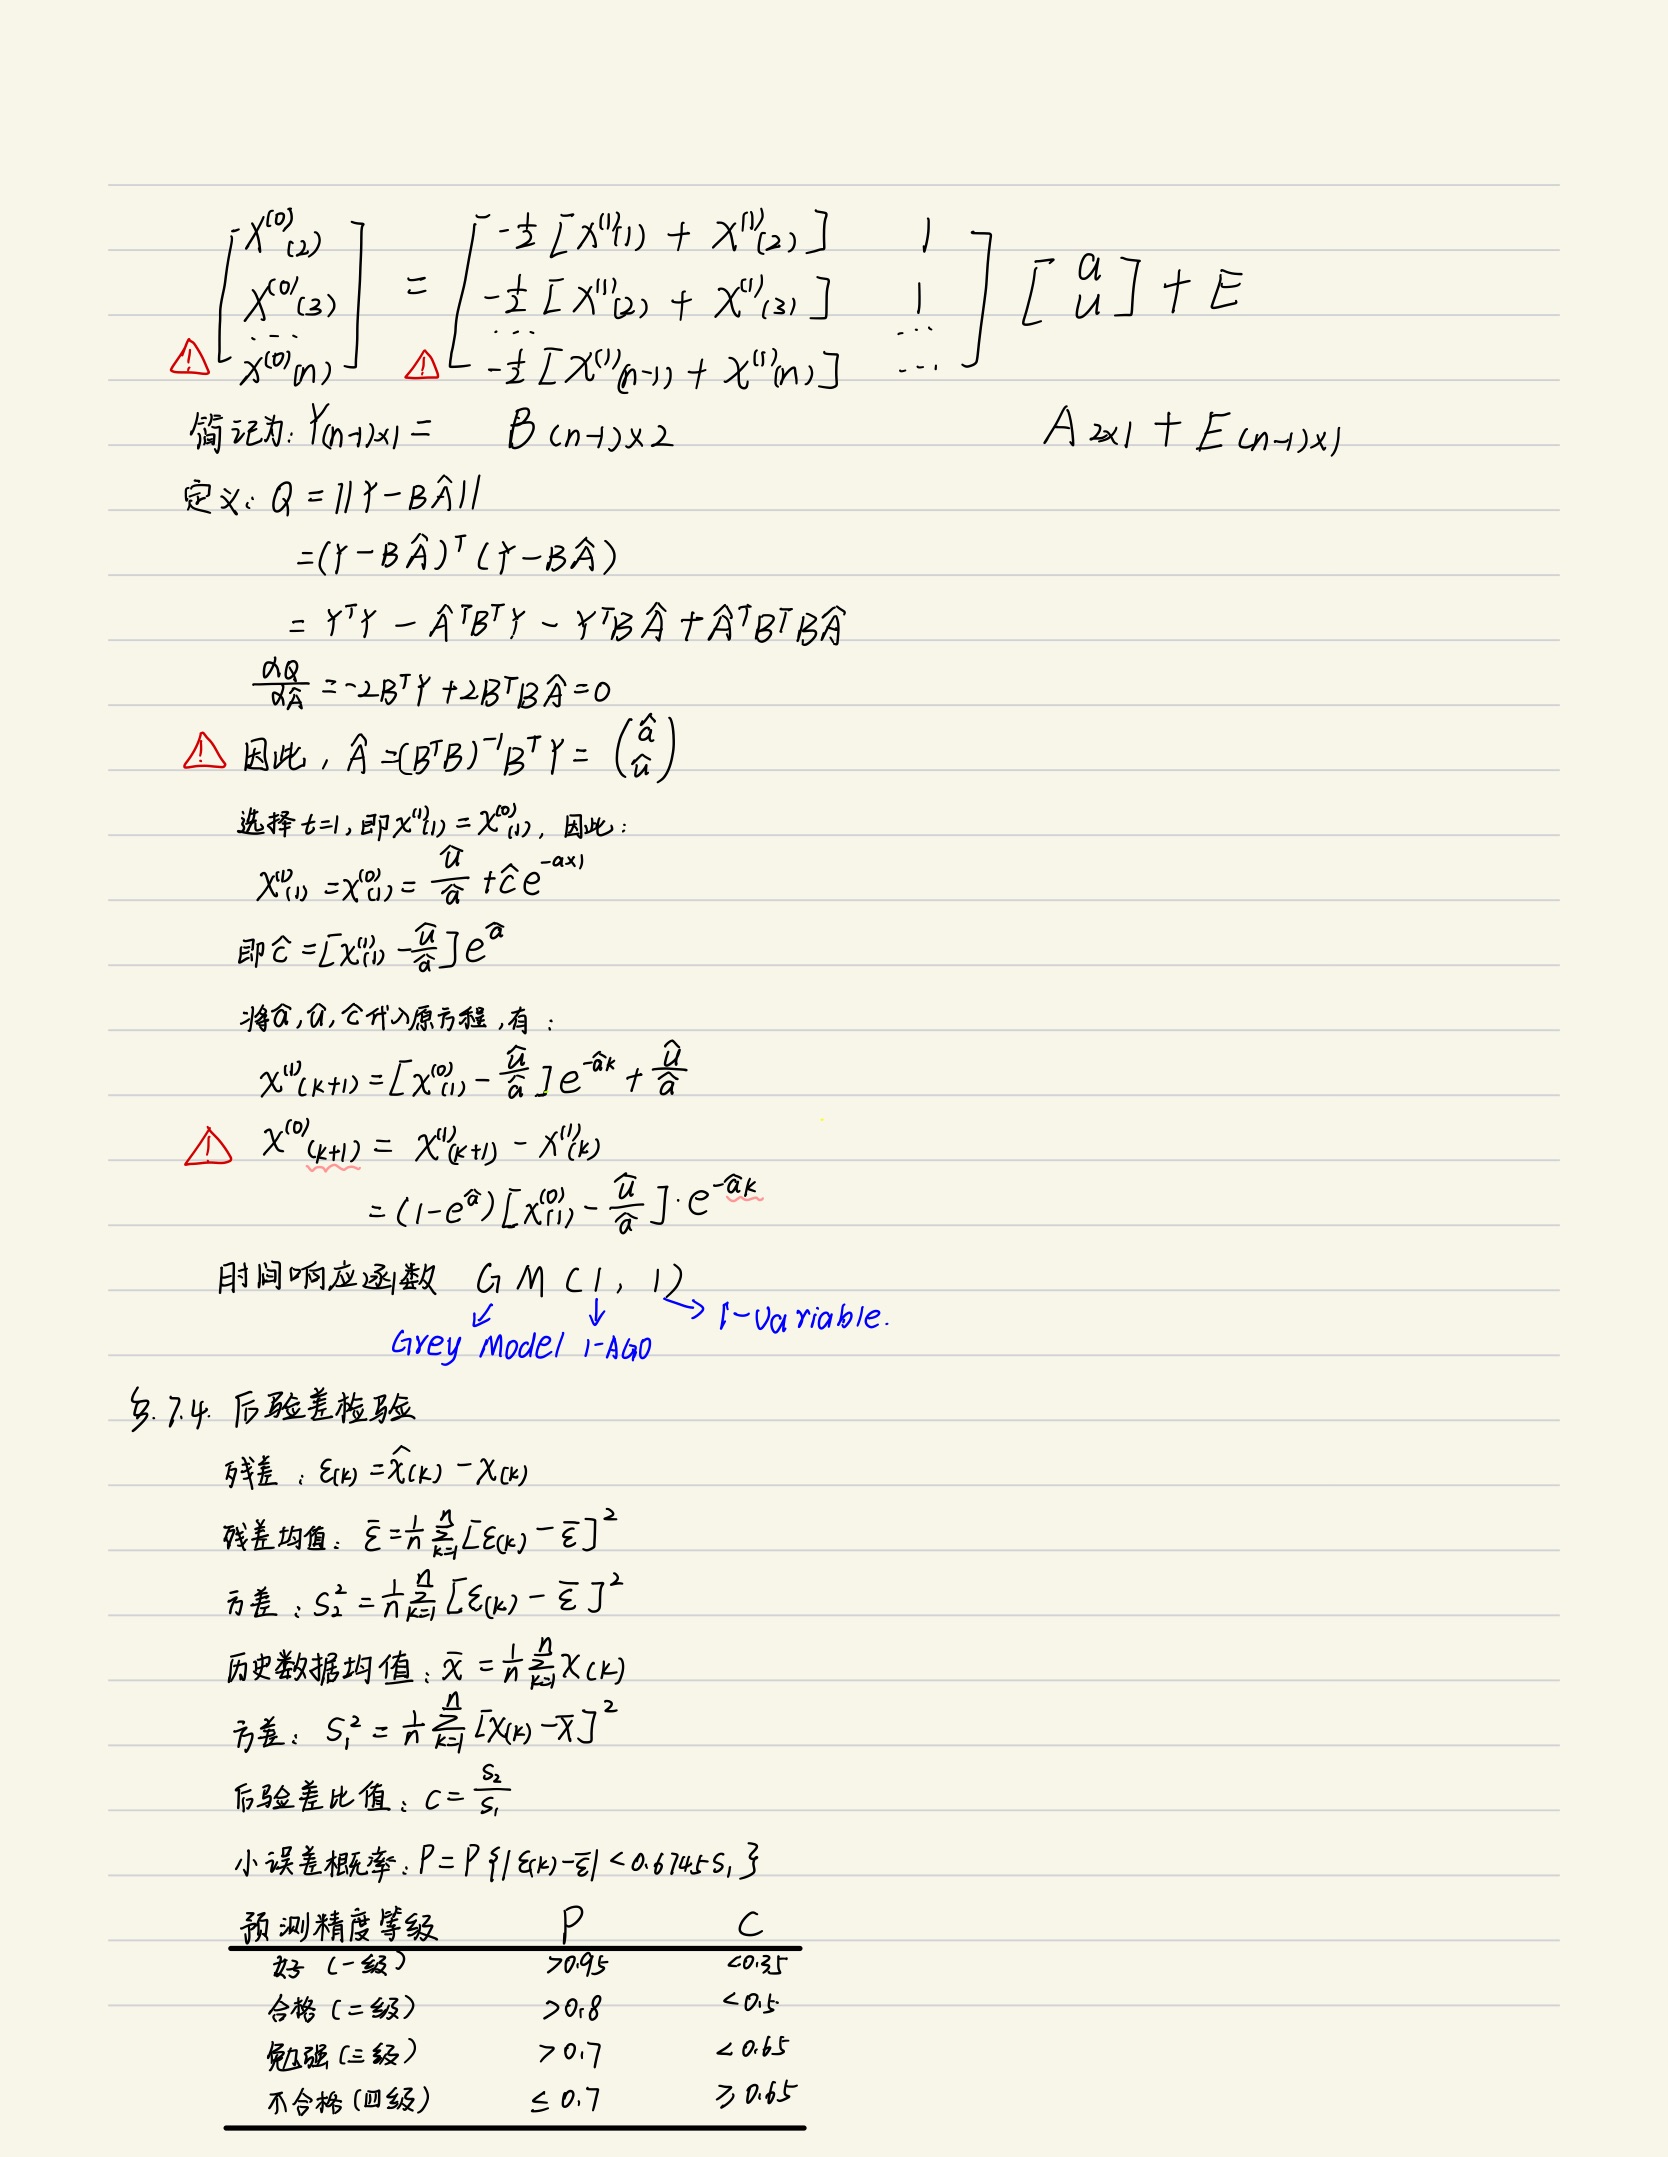 [X⁽⁰⁾(2)] = [-½[X⁽¹⁾(1) + X⁽¹⁾(2)] 1] [a] + E
[X⁽⁰⁾(3)] [-½[X⁽¹⁾(2) + X⁽¹⁾(3)] 1] [u]
... ... ...
⚠ [X⁽⁰⁾(n)] ⚠ [-½[X⁽¹⁾(n-1) + X⁽¹⁾(n)] ...]
简记为: Y(n-1)×1 = B(n-1)×2 A2×1 + E(n-1)×1
定义: Q = ||Y-BÂ||
=(Y-BÂ)ᵀ(Y-BÂ)
= YᵀY - ÂᵀBᵀY - YᵀBÂ + ÂᵀBᵀBÂ
dQ/dÂ = -2BᵀY + 2BᵀBÂ = 0
⚠ 因此, Â = (BᵀB)⁻¹BᵀY = (â û)
选择t=1, 即X⁽¹⁾(1) = X⁽⁰⁾(1), 因此:
X⁽¹⁾(1) = X⁽⁰⁾(1) = û/â + ĉe^(-a×1)
即ĉ = [X⁽¹⁾(1) - û/â]e^â
将â, û, ĉ代入原方程, 有:
X⁽¹⁾(k+1) = [X⁽⁰⁾(1) - û/â]e^(-âk) + û/â
⚠ X⁽⁰⁾(k+1) = X⁽¹⁾(k+1) - X⁽¹⁾(k)
= (1-e^â)[X⁽⁰⁾(1) - û/â]·e^(-âk)
时间响应函数 GM(1, 1)
Grey Model 1-AGO 1-variable.
§.7.4. 后验差检验
残差: ε(k) = x̂(k) - x(k)
残差均值: ε̄ = 1/n Σ(k=1→n) [ε(k) - ε̄]²
方差: S₂² = 1/n Σ(k=1→n) [ε(k) - ε̄]²
历史数据均值: x̄ = 1/n Σ(k=1→n) x(k)
方差: S₁² = 1/n Σ(k=1→n) [x(k) - x̄]²
后验差比值: C = S₂/S₁
小误差概率: P = P{|ε(k)-ε̄| < 0.6745S₁}
预测精度等级 P C
好(一级) >0.95 <0.35
合格(二级) >0.8 <0.5
勉强(三级) >0.7 <0.65
不合格(四级) ≤0.7 ≥0.65